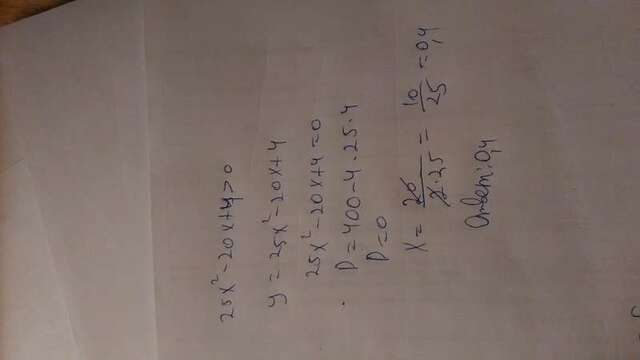 25x²-20x+4>0
y=25x²-20x+4
25x²-20x+4=0
D=400-4·25·4
D=0
x=20/2·25=10/25=0,4
Ответ:0,4